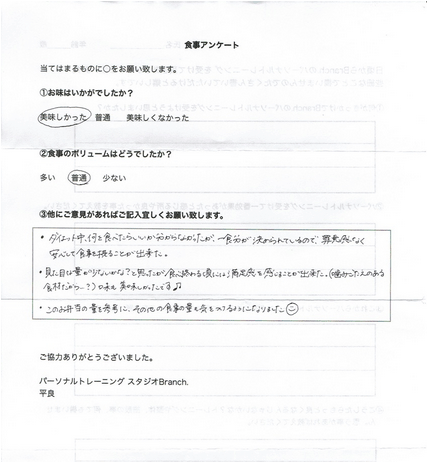 食事アンケート
当てはまるものに○をお願い致します。
①お味はいかがでしたか?
美味しかった 普通 美味しくなかった
②食事のボリュームはどうでしたか?
多い 普通 少ない
③他にご意見があればご記入宜しくお願い致します。
・ダイエット中、何を食べたらいいか分からなかったが、一食分が決められているので、罪悪感なく
安心して食事を摂ることが出来た。
・見た目は量が少ないかな?と思ったが食べ終わる頃には満足感を感じることが出来た。(噛みごたえのある
食材だから〜?)味も美味しかったです♪
・このお弁当の量を参考に、その他の食事の量も気をつけるようになりました
ご協力ありがとうございました。
パーソナルトレーニング スタジオBranch.
平良